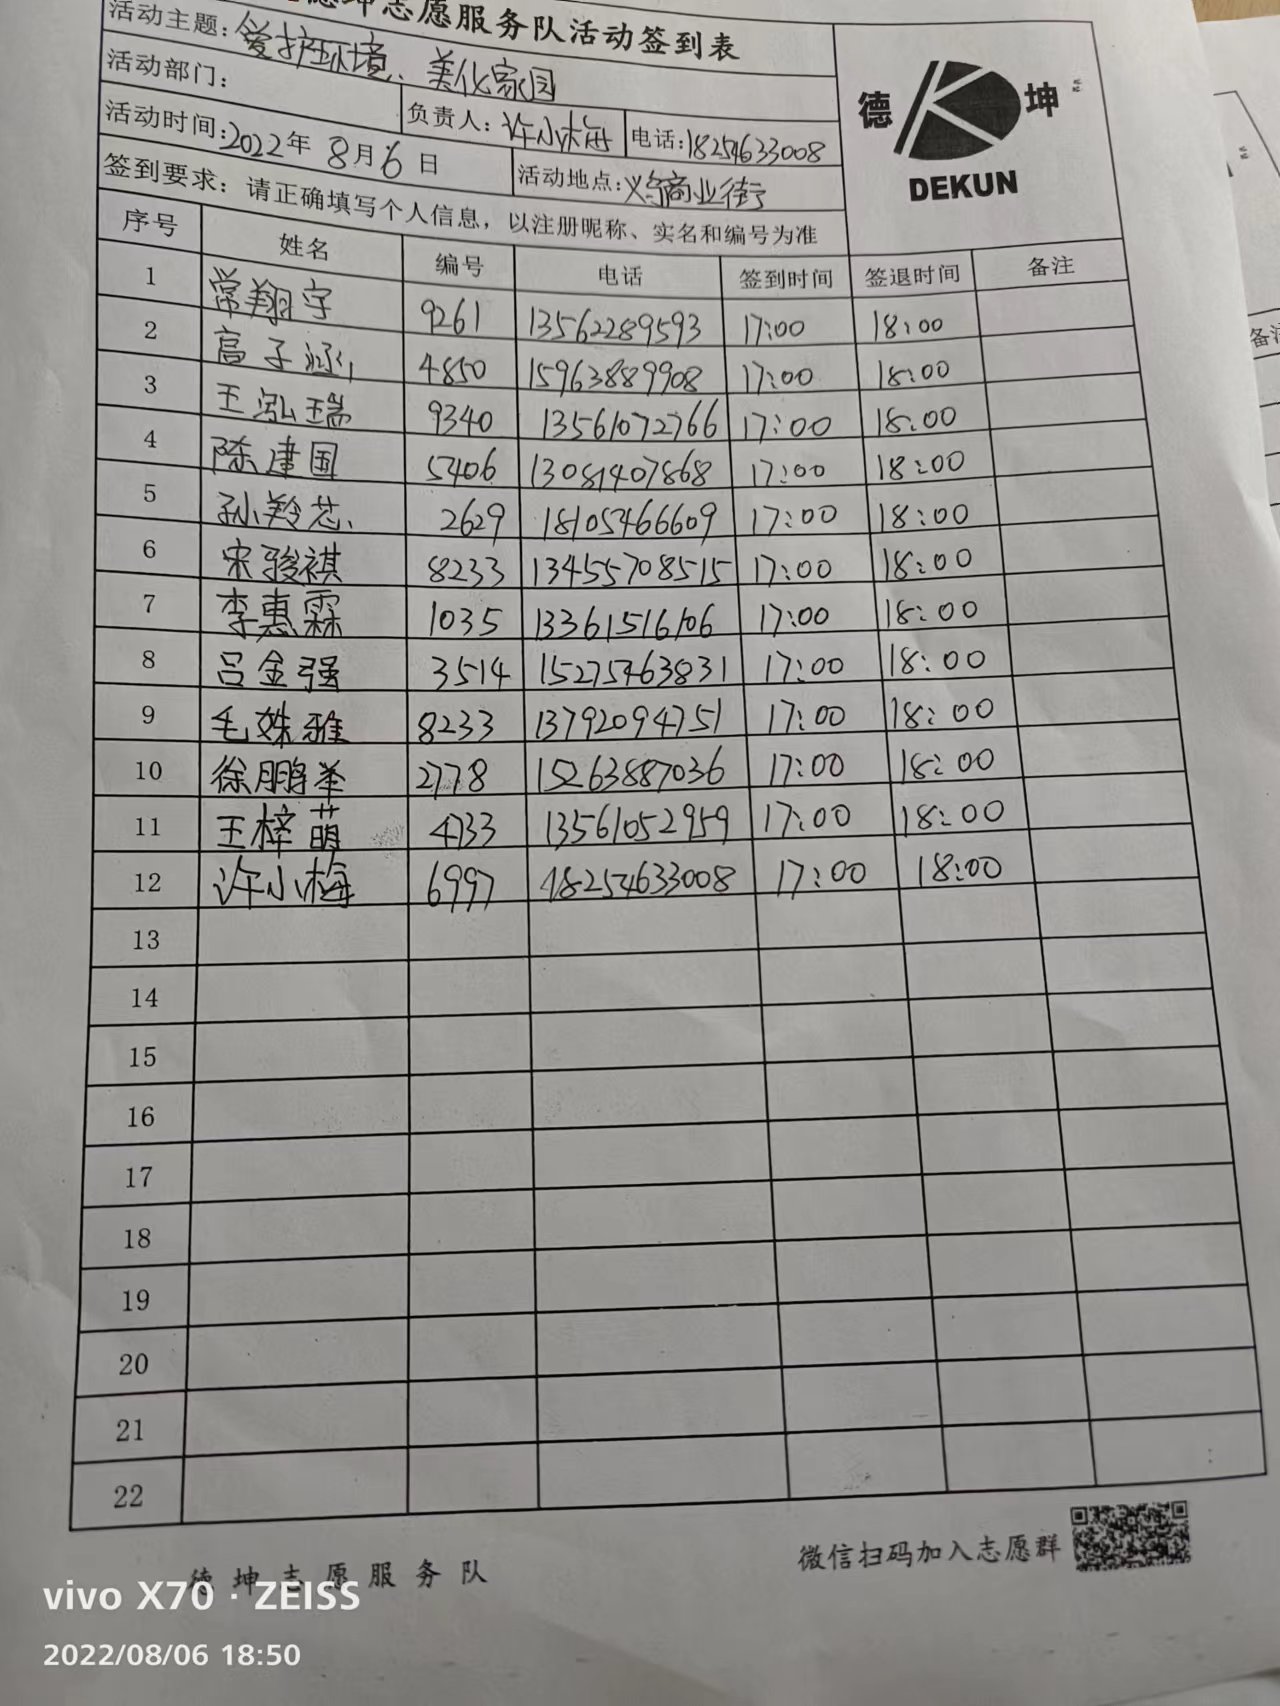 德坤志愿服务队活动签到表
活动主题: 爱护环境、美化家园
活动部门:
负责人: 许小梅 电话: 18254633008
活动时间: 2022年 8月6日
活动地点: 义乌商业街
签到要求: 请正确填写个人信息，以注册昵称、实名和编号为准
德 坤
DEKUN
序号 姓名 编号 电话 签到时间 签退时间 备注
1 常翔宇 9261 13562289593 17:00 18:00
2 高子涵 4850 15963889908 17:00 18:00
3 王泓瑞 9340 13561072766 17:00 18:00
4 陈建国 5406 13081407868 17:00 18:00
5 孙羚芯 2629 18105466609 17:00 18:00
6 宋骏祺 8233 13455708515 17:00 18:00
7 李惠霖 1035 13361516106 17:00 18:00
8 吕金强 3514 15275463831 17:00 18:00
9 毛姝雅 8233 13792094751 17:00 18:00
10 徐鹏举 2778 15263887036 17:00 18:00
11 王梓萌 4733 13561052959 17:00 18:00
12 许小梅 6997 18254633008 17:00 18:00
13
14
15
16
17
18
19
20
21
22
德坤志愿服务队
微信扫码加入志愿群
vivo X70 · ZEISS
2022/08/06 18:50
备注